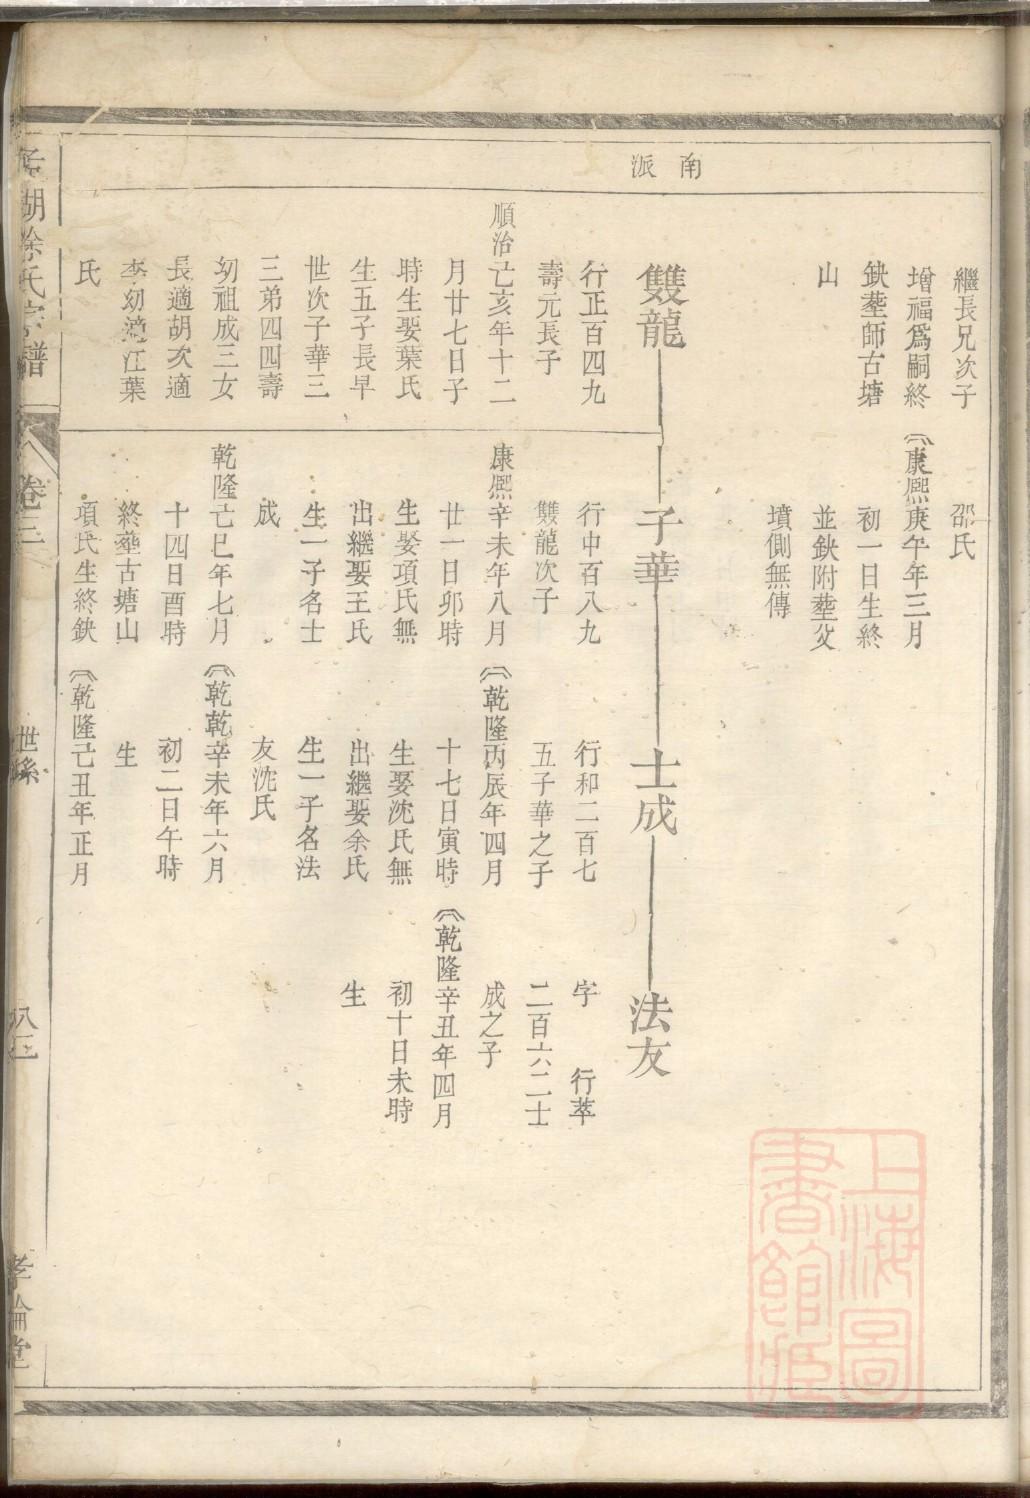 南派
繼長兄次子
增福爲嗣終
鈌塟師古塘
山
邵氏
康熙庚午年三月
初一日生終
並鈌附塟父
墳側無傳
雙龍
子華
士成
法友
行正百四九
壽元長子
順治己亥年十二
月廿七日子
時生娶葉氏
生五子長早
世次子華三
三弟四四壽
㓜祖成三女
長適胡次適
李㓜適江葉
氏
行中百八九
雙龍次子
康熙辛未年八月
廿一日卯時
生娶項氏無
出繼娶王氏
生一子名士
成
乾隆己巳年七月
十四日酉時
終塟古塘山
項氏生終鈌
行和二百七
五子華之子
乾隆丙辰年四月
十七日寅時
生娶沈氏無
出繼娶余氏
生一子名法
友沈氏
乾乾辛未年六月
初二日午時
生
乾隆己丑年正月
字 行萃
二百六二士
成之子
乾隆辛丑年四月
初十日未時
生
湖徐氏宗譜
卷三
世系
八三
孝倫堂
上海圖
書館藏